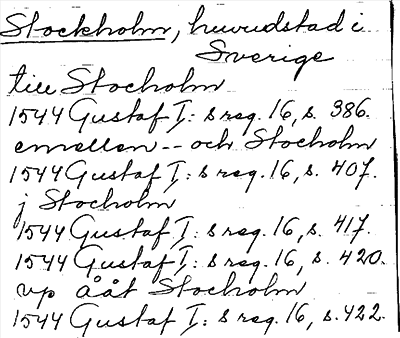 Stockholm, huvudstad i
Sverige
till Stocholm
1544 Gustaf I:s reg. 16, s. 386.
emellen -- och Stocholm
1544 Gustaf I:s reg. 16, s. 407.
j Stocholm
1544 Gustaf I:s reg. 16, s. 417.
1544 Gustaf I:s reg. 16, s. 420.
vp ååt Stocholm
1544 Gustaf I:s reg. 16, s. 422.